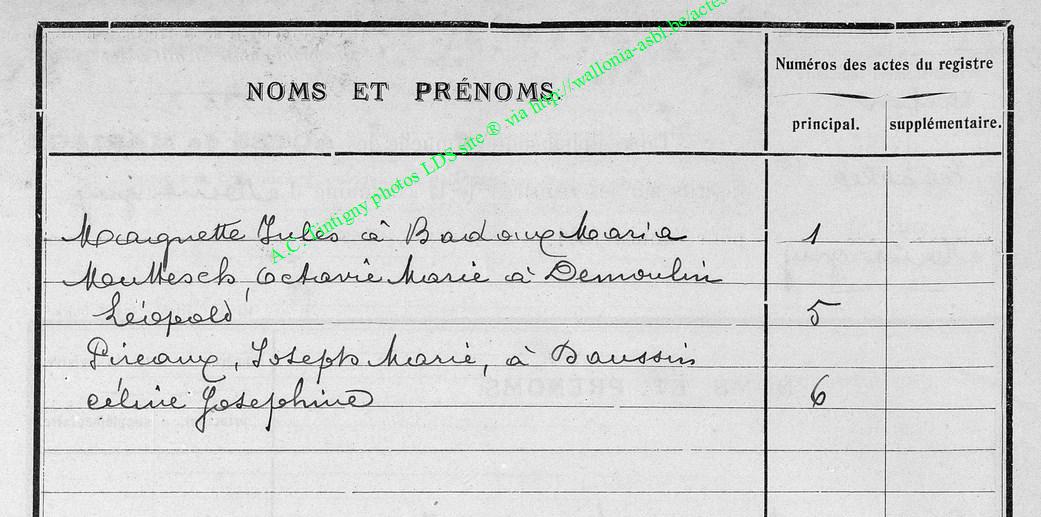 NOMS ET PRÉNOMS.
Numéros des actes du registre
principal. supplémentaire.
A.C. Tintigny photos LDS site ® via http://wallonia-asbl.be/actes
Maquette Jules à Badoux Maria 1
Octavie Marie à Demoulin
Léopold 5
Pireaux, Joseph Marie, à Baussin
Céline Josephine 6